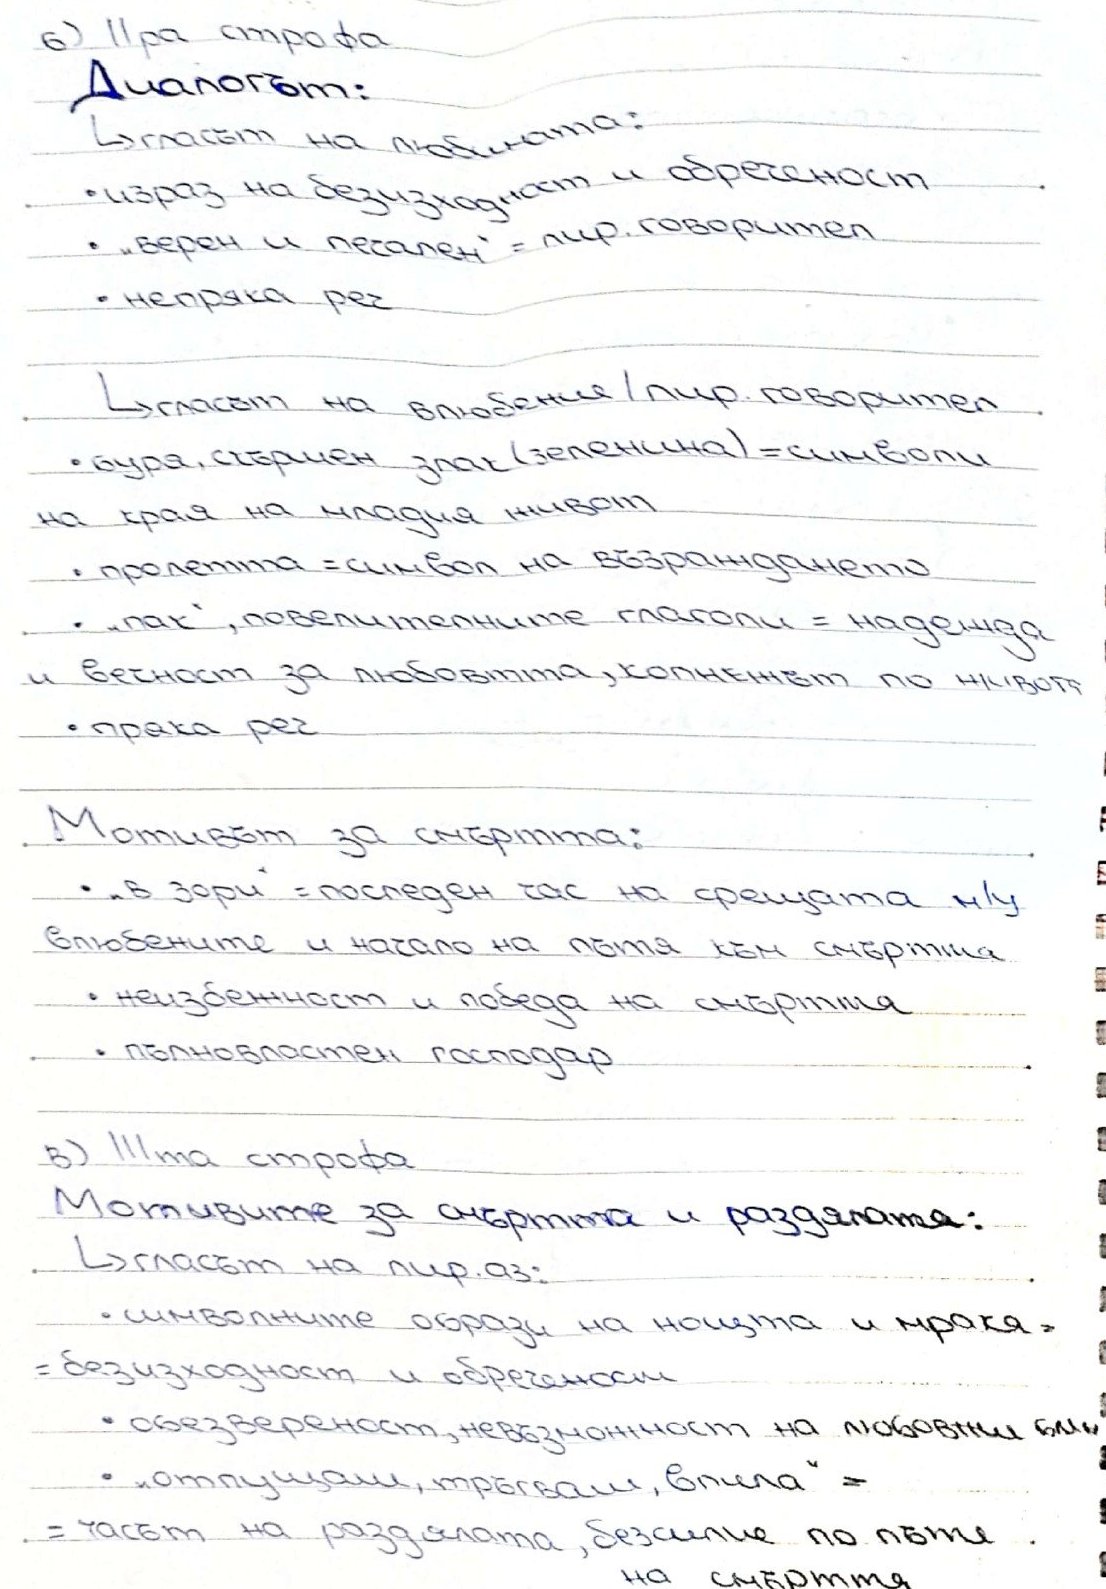 б) IIра строфа
Диалогът:
↳гласът на любимата:
•израз на безизходност и обреченост
• „верен и печален“ = лир. говорител
• непряка реч
↳гласът на влюбения/лир. говорител
•буря, скършен злак (зеленина) = символи
на края на младия живот
• пролетта = символ на възраждането
• „пак“, повелителните глаголи = надежда
и вечност за любовтта, копнежът по живота
• пряка реч
Мотивът за смъртта:
• „в зори“ = последен час на срещата м/у
влюбените и начало на пътя към смъртта
• неизбежност и победа на смъртта
• пълновластен господар
в) IIIта строфа
Мотивите за смъртта и раздялата:
↳гласът на лир. аз:
•символните образи на нощта и мрака =
= безизходност и обреченост
• обезвереност, невъзможност на любовния
• „отпущаш, тръгваш, впила“ =
= часът на раздялата, безсилие по пътя
на смъртта